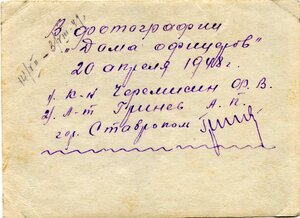 В фотографии
"Дома офицеров"
20 апреля 1948г.
1/ К-н Черемисин Ф. В.
2/ Л-т Гринев А. П.
гор. Ставрополь